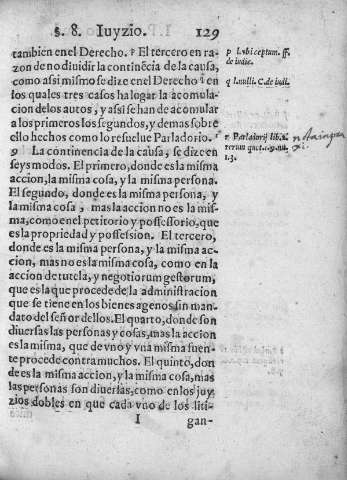 §. 8. Iuyzio. 129
tambien en el Derecho. ᵖ El tercero en ra-
zon de no diuidir la continẽcia de la causa,
como assi mismo se dize en el Derecho ᑫ en
los quales tres casos ha logar la acomula-
cion delos autos, y assi se han de acomular
a los primeros los segundos, y demas sobre
ello hechos como lo resuelue Parladorio. ʳ
9 La continencia de la causa, se dize en
seys modos. El primero, donde es la misma
accion, la misma cosa, y la misma persona.
El segundo, donde es la misma persona, y
la misma cosa, mas la accion no es la mis-
ma, como en el petitorio y possessorio, que
es la propriedad y possession. El tercero,
donde es la misma persona, y la misma ac-
cion, mas no es la misma cosa, como en la
accion de tutela, y negotiorum gestorum,
que es la que procede de la administracion
que se tiene en los bienes agenos sin man-
dato del señor dellos. El quarto, donde son
diuersas las personas y cosas, mas la accion
es la misma, que de vno y vna misma fuen-
te procede contra muchos. El quinto, don
de es la misma accion, y la misma cosa, mas
las personas son diuersas, como en los juy
zios dobles en que cada vno de los liti-
I gan-
p L. vbi ceptum. ff.
de iudic.
q l. nulli. C. de iudi.
r Parladorij lib. 2.
rerum quot. c. 9. nu.
1. 3.